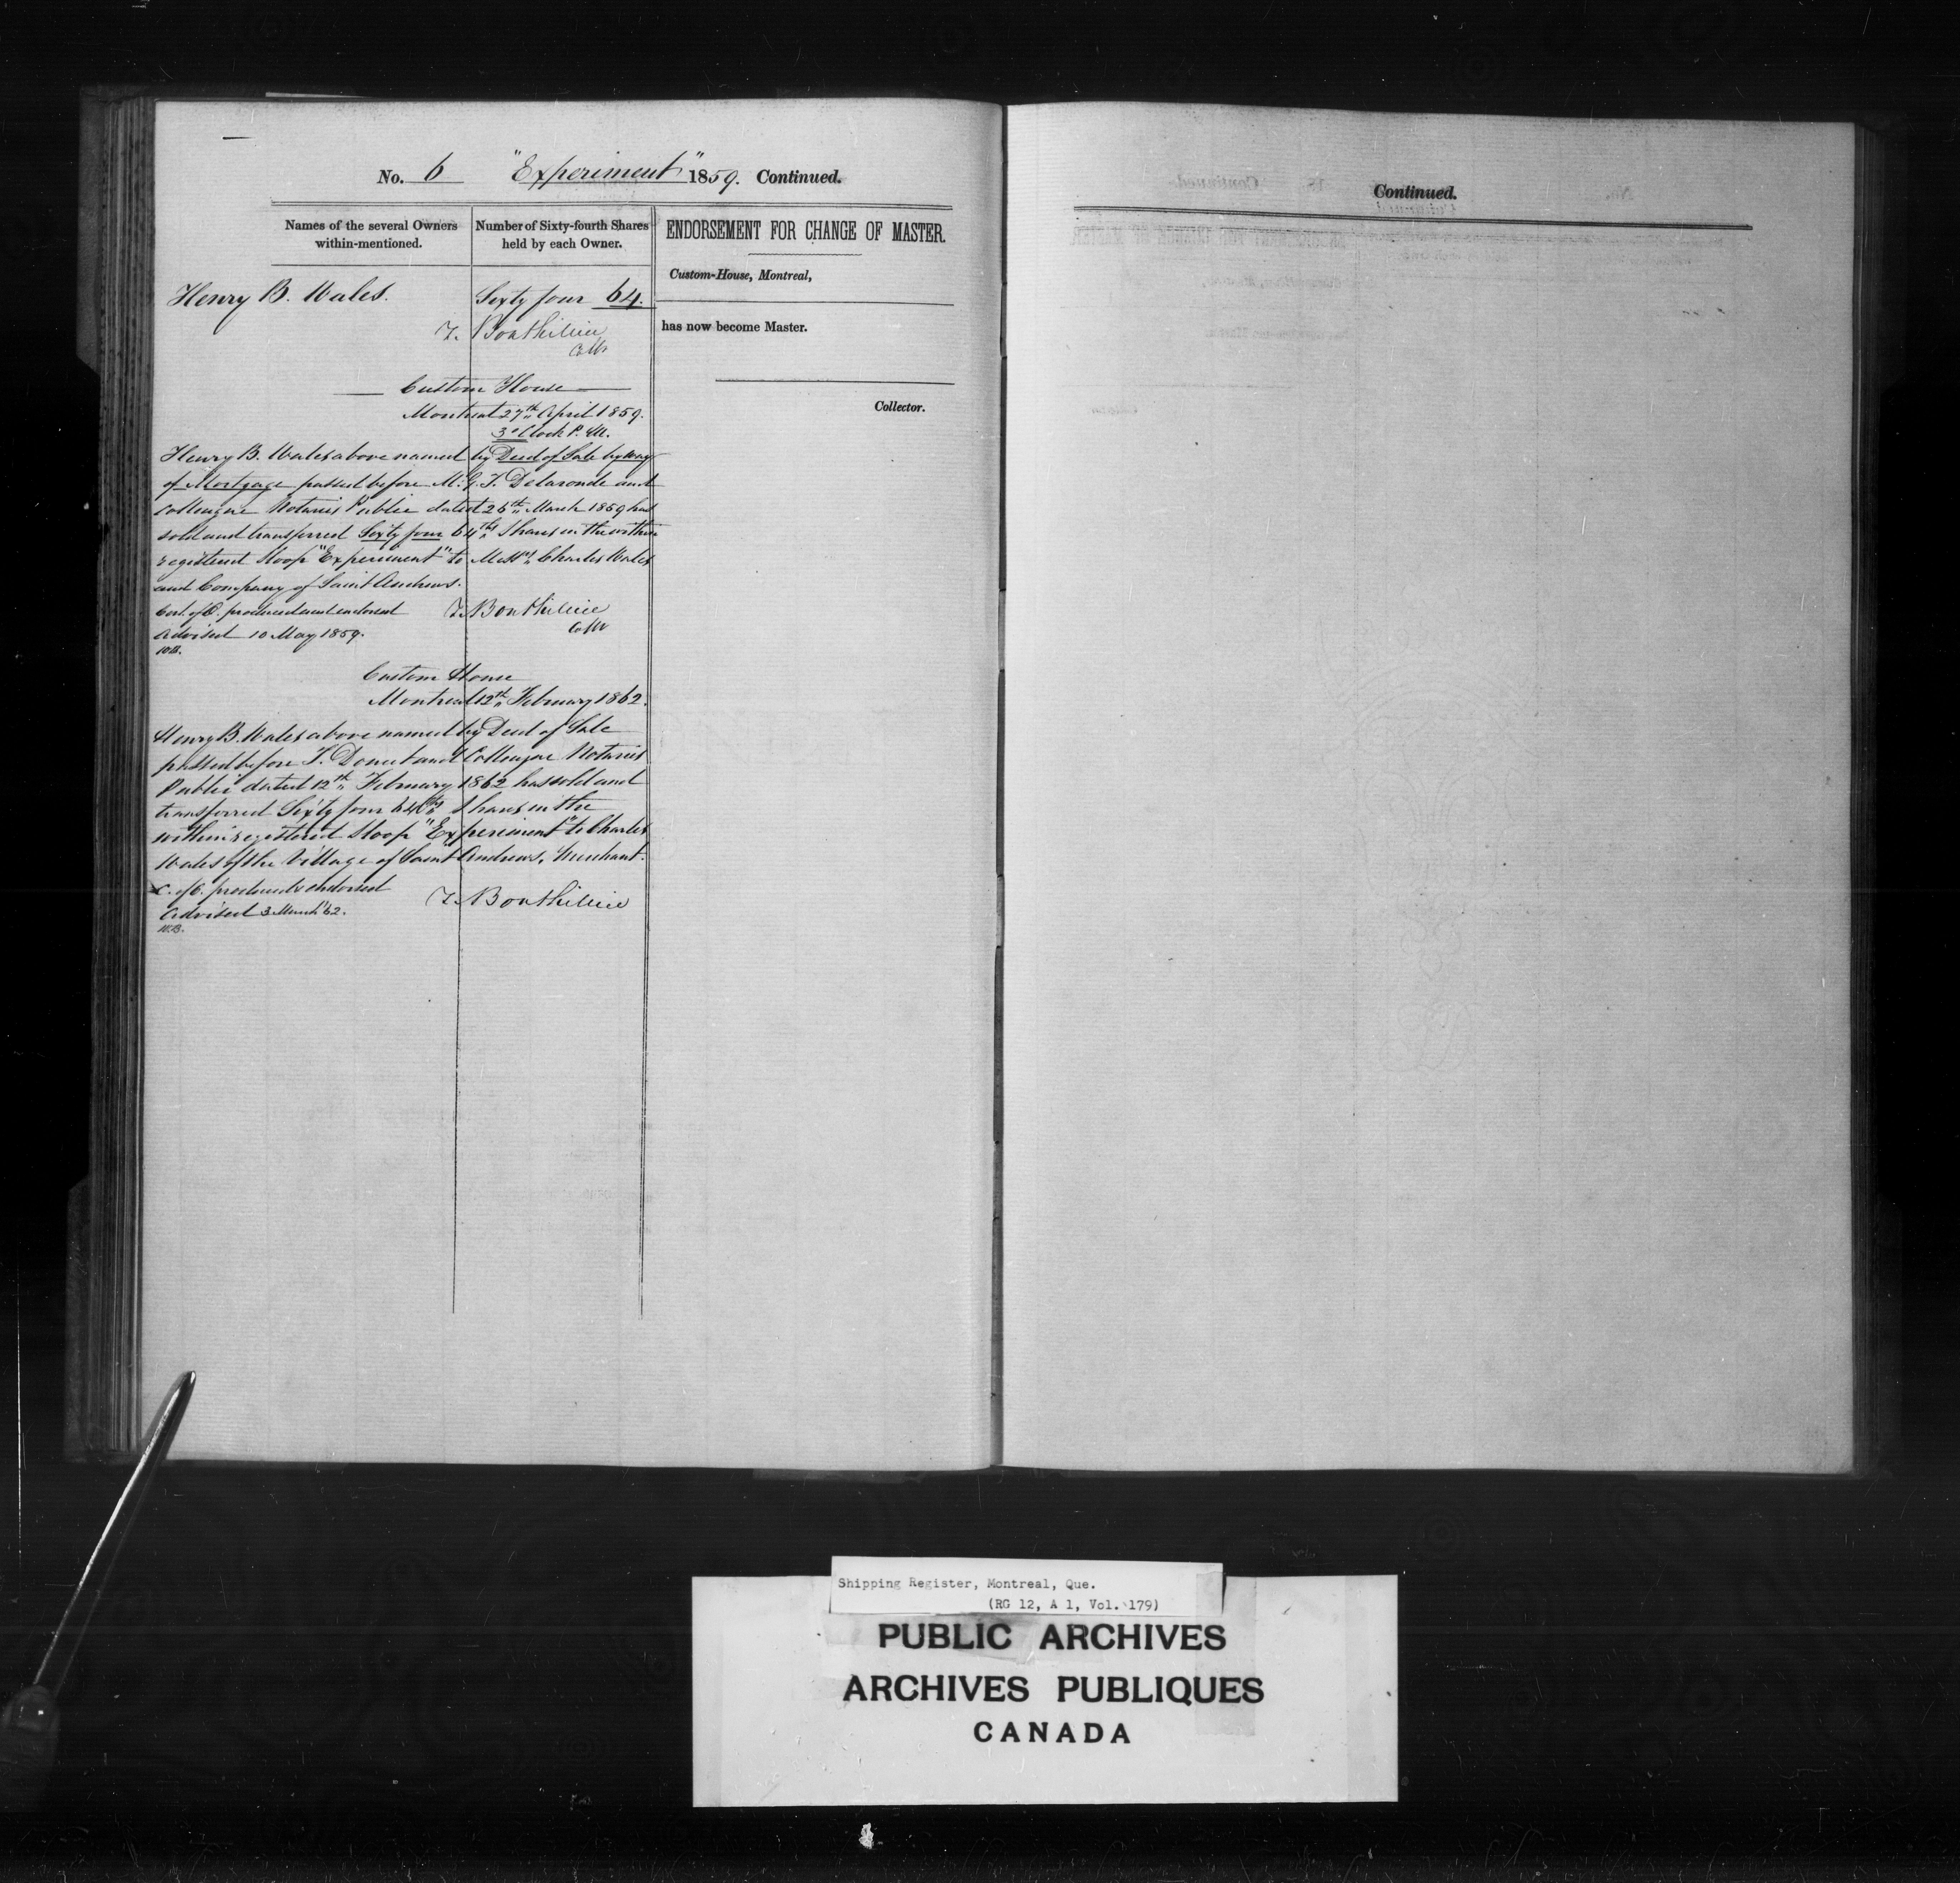 No. 6 "Experiment" 1859. Continued.
Names of the several Owners within-mentioned.
Number of Sixty-fourth Shares held by each Owner.
ENDORSEMENT FOR CHANGE OF MASTER.
Henry B. Wales.
Sixty four 64.
T. Bouthillier
Collr
Custom-House, Montreal,
has now become Master.
Collector.
Custom House
Montreal 27th April 1859.
3 o'Clock P.M.
Henry B. Wales above named by Deed of Sale by way
of Mortgage passed before M. G. F. Delaronde and
Colleague Notaries Public dated 26th March 1859 has
sold and transferred Sixty four 64ths Shares in the within
registered Sloop "Experiment" to Messrs Charles Wales
and Company of Saint Andrews.
Cert. of O. produced and endorsed
T. Bouthillier
Collr
Advised 10 May 1859.
W.B.
Custom House
Montreal 12th February 1862.
Henry B. Wales above named by Deed of Sale
passed before F. and Colleague Notaries
Public dated 12th February 1862 has sold and
transferred Sixty four 64ths Shares in the
within registered Sloop "Experiment" to Charles
Wales of the Village of Saint Andrews, Merchant.
C. of O. produced & endorsed
T. Bouthillier
Advised 3 March '62.
W.B.
Continued.
Shipping Register, Montreal, Que.
(RG 12, A 1, Vol. 179)
PUBLIC ARCHIVES
ARCHIVES PUBLIQUES
CANADA